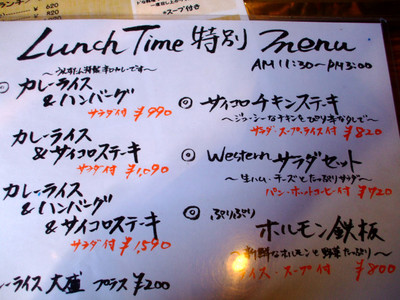 620
820
スープ付き
Lunch Time 特別 menu
AM 11:30〜PM 3:00
◎ カレーライス
& ハンバーグ
サラダ付 ¥990
カレーライス
& サイコロステーキ
サラダ付 ¥1,090
カレーライス
& ハンバーグ
& サイコロステーキ
サラダ付 ¥1,590
ーライス 大盛 プラス ¥200
◎ サイコロチキンステーキ
〜ジューシーなチキンをピリ辛なタレで〜
サラダ・スープ・ライス付 ¥820
◎ Western サラダセット
〜生ハム・チーズとたっぷりサラダ〜
パン・ホットコーヒー付 ¥720
◎ ぷりぷり
ホルモン鉄板
〜新鮮なホルモンと野菜たっぷり〜
ライス・スープ付 ¥800